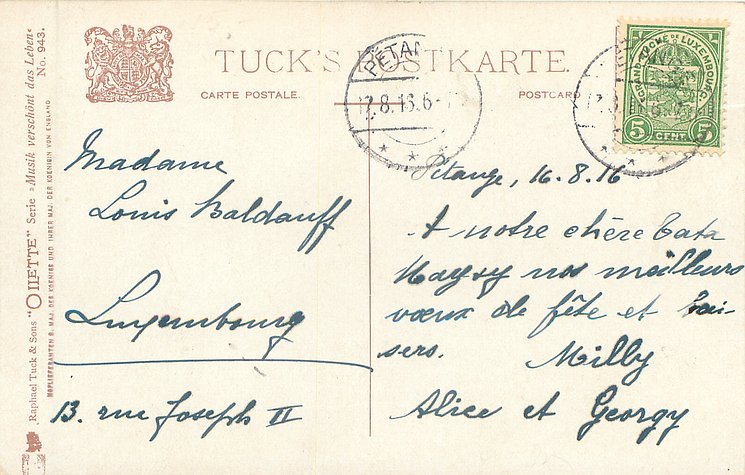 TUCK'S POSTKARTE.
CARTE POSTALE.
POSTCARD
PÉTAN
12.8.16.6-
GRAND-DUCHÉ DE LUXEMBOURG
5 CENT. 5
Raphael Tuck & Sons "OILETTE" Serie „Musik verschönt das Leben“ No. 943.
HOFLIEFERANTEN S. MAJ. DES KOENIGS UND IHRER MAJ. DER KOENIGIN VON ENGLAND
Madame
Louis Baldauff
Luxembourg
13. rue Joseph II
Pétange, 16.8.16
A notre chère tata
Maysy nos meilleurs
vœux de fête et bai-
sers. Milly
Alice et Georgy